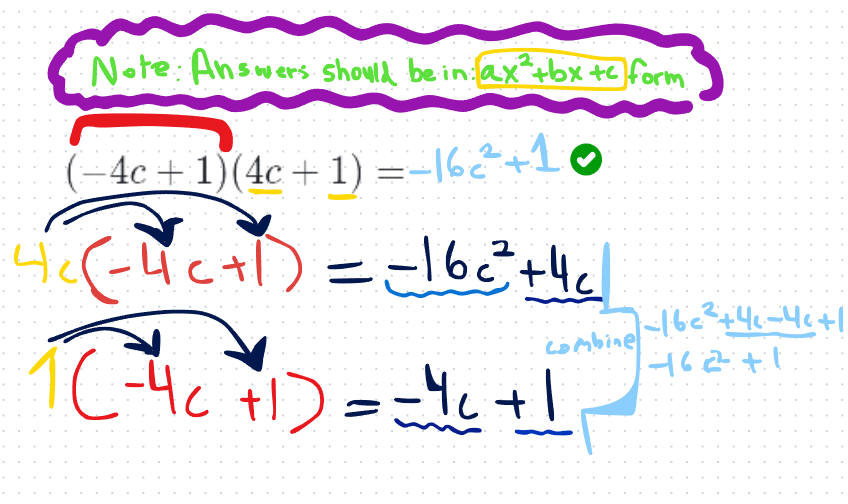 Note: Answers should be in: ax²+bx+c form
(−4c + 1)(4c + 1) = -16c²+1
4c(-4c+1) = -16c²+4c
-16c²+4c-4c+1
combine
-16c²+1
1(-4c+1) = -4c+1